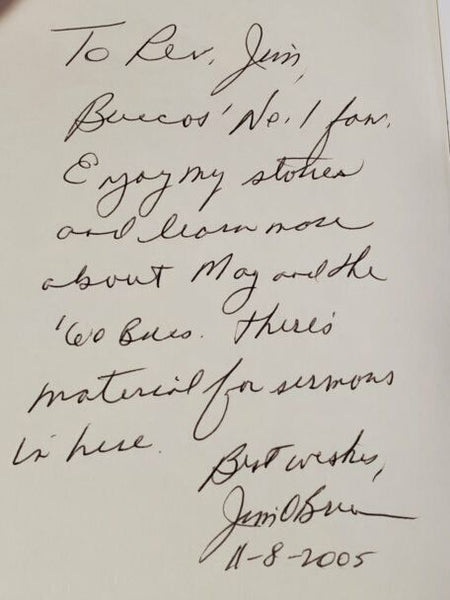 To Rev. Jim,
Buccos' No. 1 fan.
Enjoy my stories
and learn more
about Maz and the
'60 Bucs. There's
material for sermons
in here.
Best wishes,
Jim O'Brien
11-8-2005